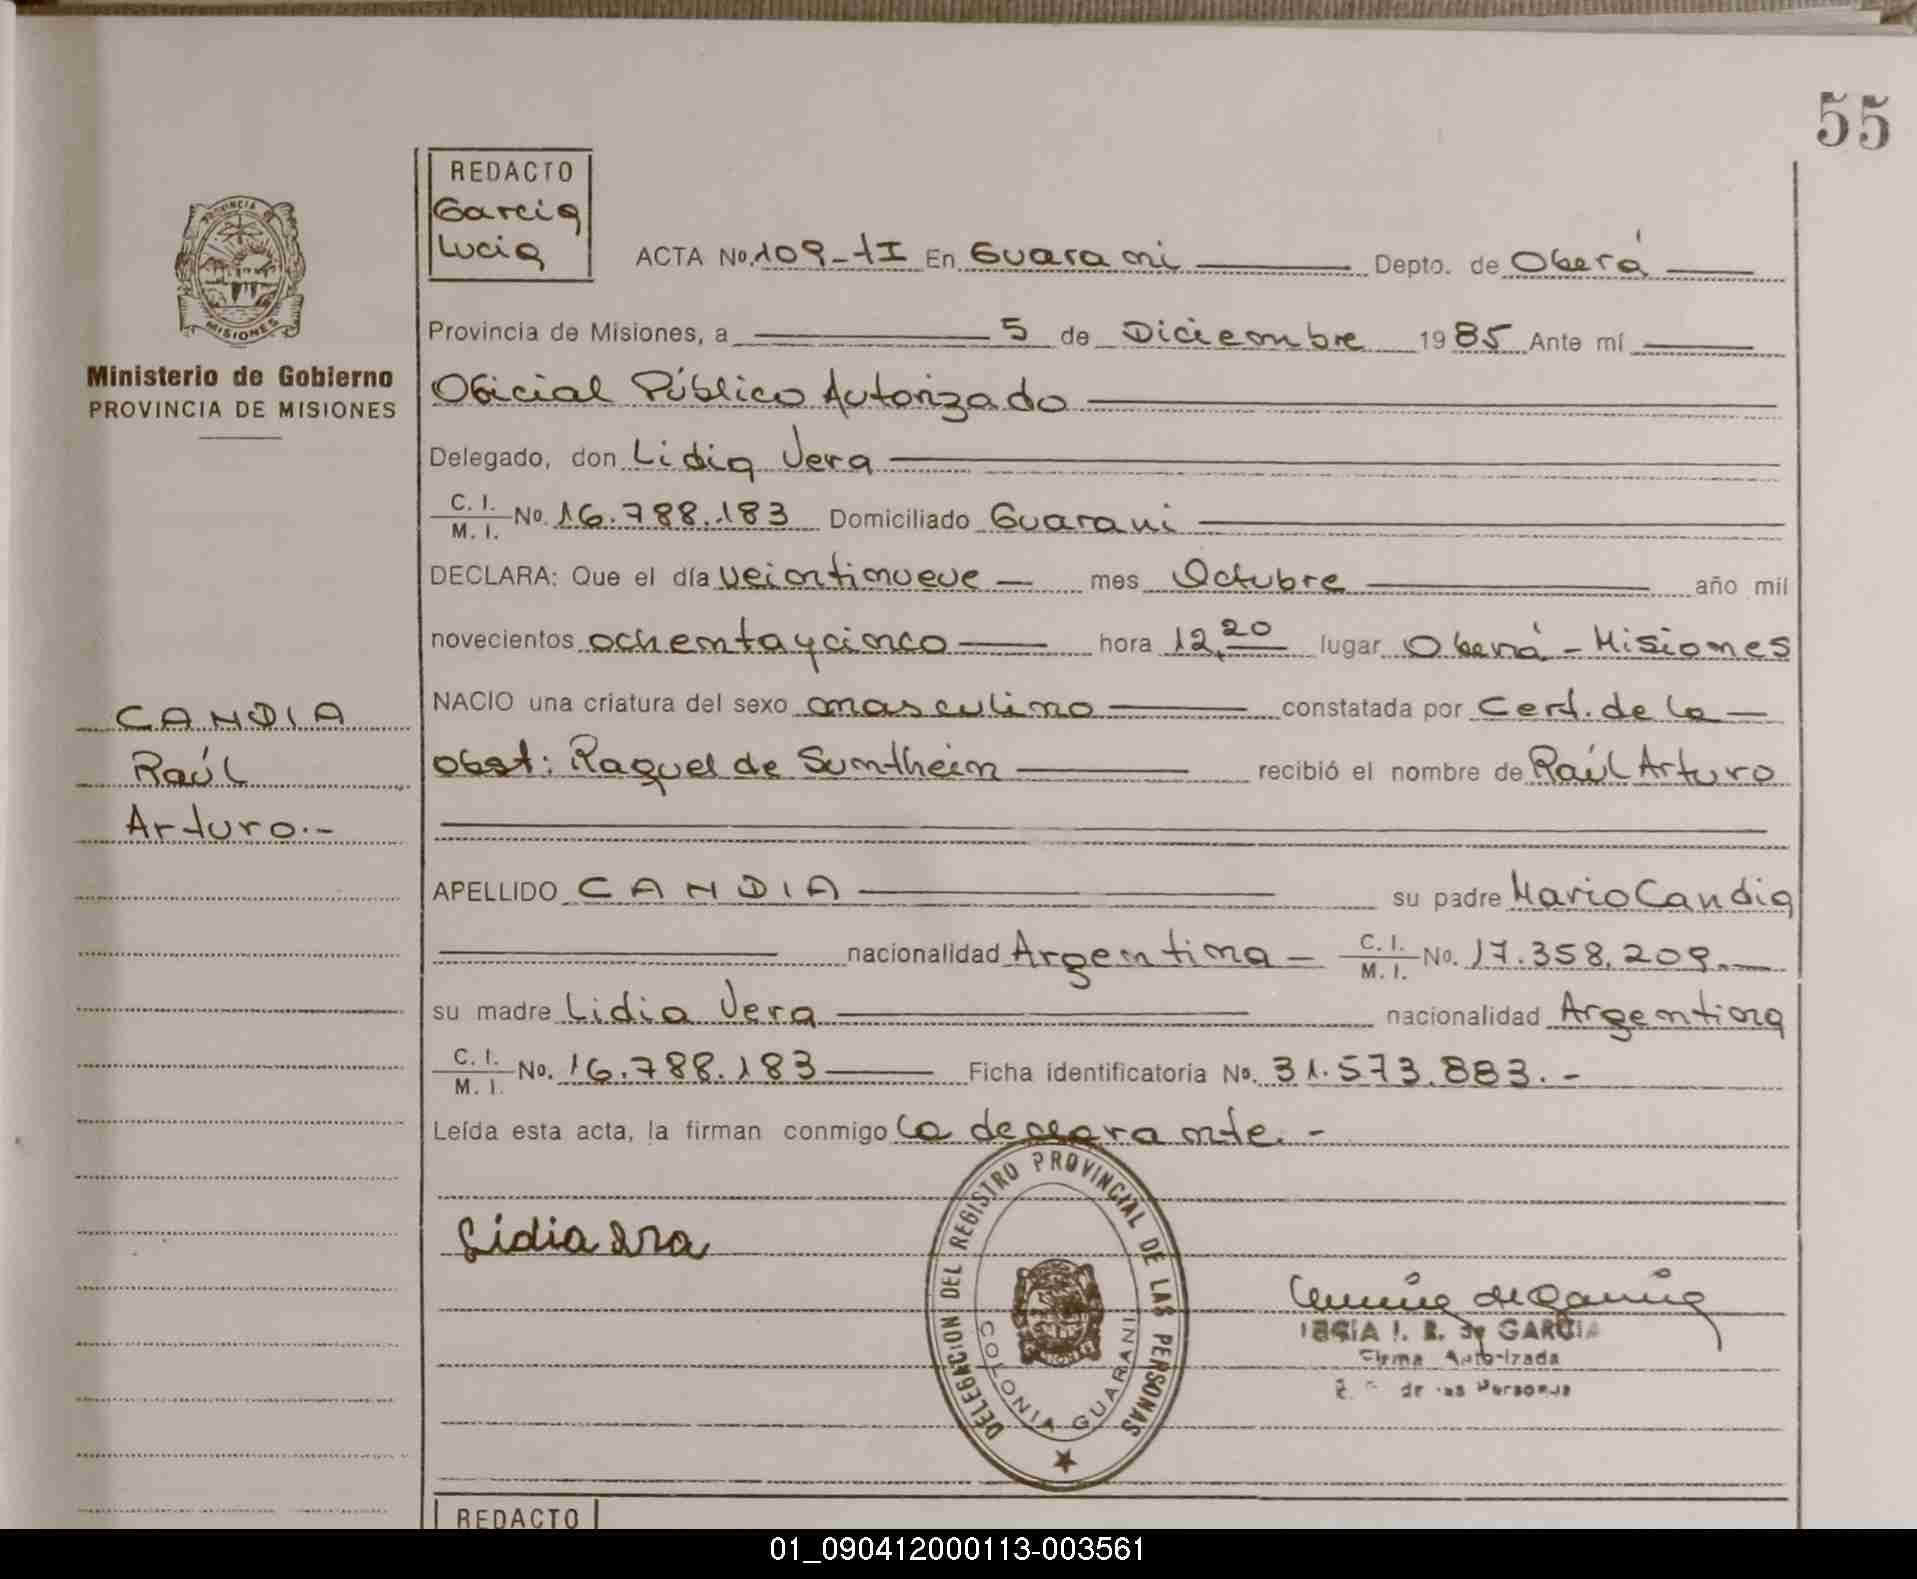 55
REDACTO
Garcia
Lucia
PROVINCIA DE
MISIONES
Ministerio de Gobierno
PROVINCIA DE MISIONES
ACTA No. 109-tI En Guarani Depto. de Oberá
Provincia de Misiones, a 5 de Diciembre 1985 Ante mí
Oficial Público Autorizado
Delegado, don Lidia Vera
C. I. M. I. No. 16.788.183 Domiciliado Guarani
DECLARA: Que el día veintinueve mes Octubre año mil
novecientos ochentaycinco hora 12,20 lugar Oberá - Misiones
NACIO una criatura del sexo masculino constatada por Cert. de la
obst: Raquel de Sumthein recibió el nombre de Raúl Arturo
CANDIA
Raúl
Arturo.-
APELLIDO CANDIA su padre Mario Candia
nacionalidad Argentina - C. I. M. I. No. 17.358.209.
su madre Lidia Vera nacionalidad Argentina
C. I. M. I. No. 16.788.183 Ficha identificatoria No. 31.573.883.-
Leída esta acta, la firman conmigo la declarante.-
DELEGACION DEL REGISTRO PROVINCIAL DE LAS PERSONAS
COLONIA GUARANI
Lidia Vera
I. R. de GARCIA
Firma Autorizada
de las Personas
REDACTO
01_090412000113-003561